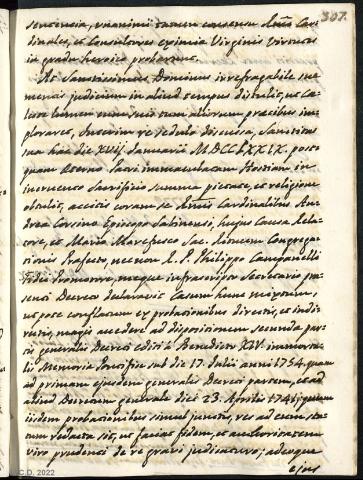 307.
sententia, unanimi tamen consensu Emi Car
dinales, et Consultores eximia Virginis Virtutes
in gradu heroico probarunt.
At Sanctissimus Dominus irrefragabile sue
mentis judicium in aliud tempus distulit, ut Cæ
leste lumen tum suis tum aliorum precibus im
ploraret. Interim re sedulo discussa, Sanctitas
sua hac die XVII. Januarii MDCCLXXIX. post
quam Æterno Patri immaculatam Hostiam in
incruento Sacrificio summa pietate, et religione
obtulit, accitis coram se Emis Cardinalibus An
drea Corsino Episcopo Sabinensi, hujus Causæ Rela
tore, et Mario Marefusco Sac. Rituum Congrega
tionis Præfecto, necnon R. P. Philippo Campanelli
Fidei Promotore, meque infrascripto Secretario præ
senti Decreto declaravit Casum hunc mixtum,
utpote conflatum ex probationibus directis, et indi
rectis, magis accedere ad dispositionem secundæ par
tis generalis Decreti editi à Benedicto XIV. immorta
lis Memoriæ Pontifice sub die 17. Julii anni 1754. quam
ad primam ejusdem generalis Decreti partem, et ad
aliud Decretum generale diei 23. Aprilis 1741; quum
iisdem probationibus simul junctis, res ad eum sta
tum redacta sit, ut faciat fidem, et auctoritatem
viro prudenti de re gravi judicaturo; adeoque
ejus
C.D. 2022